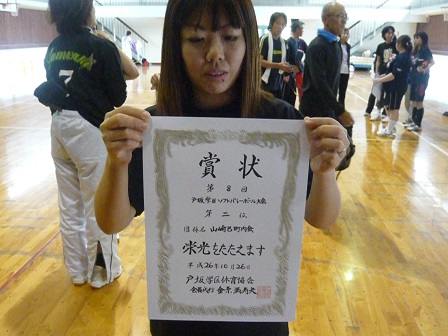 7
賞状
第8回
戸坂学区ソフトバレーボール大会
第二位
団体名 山崎呂町内会
栄光をたたえます
平成26年10月26日
戸坂学区体育協会